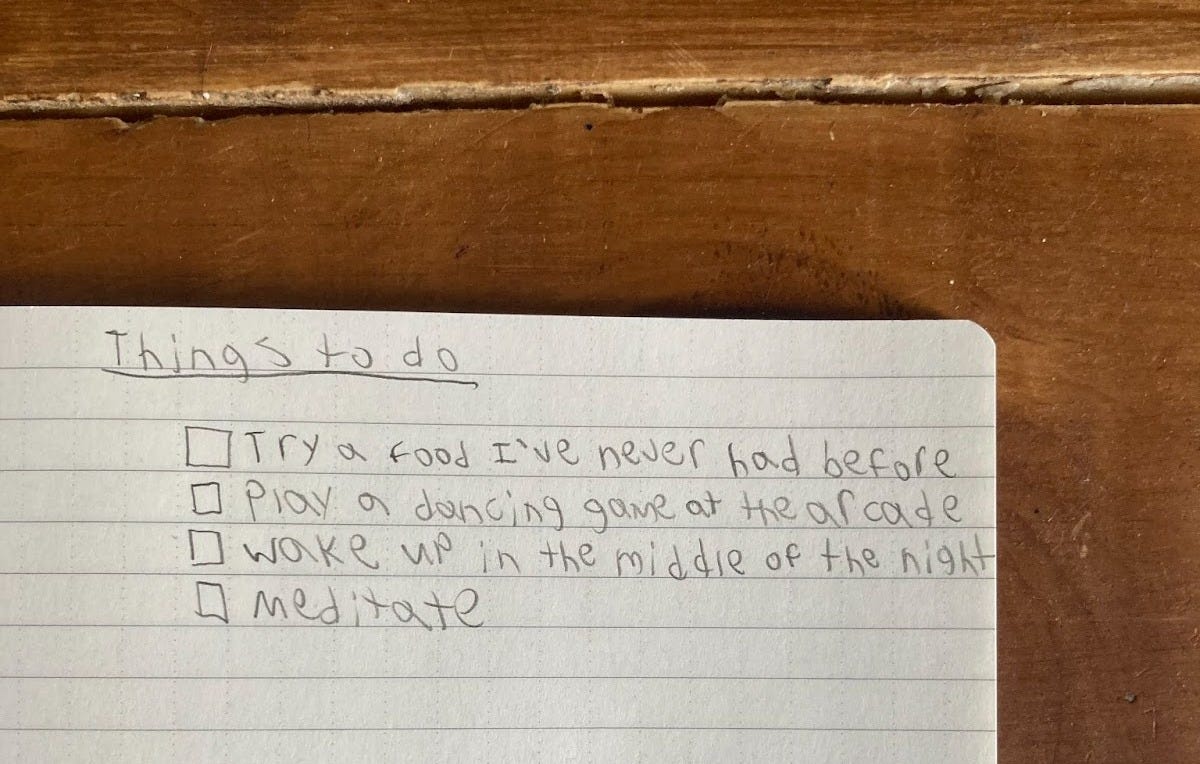 Things to do
Try a food I've never had before
Play a dancing game at the arcade
wake up in the middle of the night
meditate